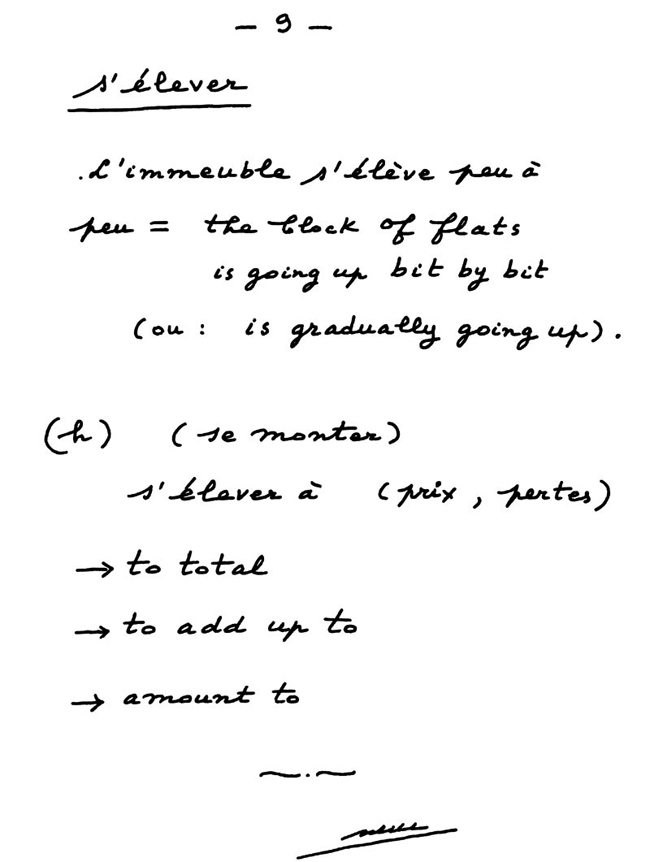 — 9 —
s'élever
. L'immeuble s'élève peu à
peu = the block of flats
is going up bit by bit
(ou : is gradually going up).
(h) (se monter)
s'élever à (prix, pertes)
→ to total
→ to add up to
→ amount to